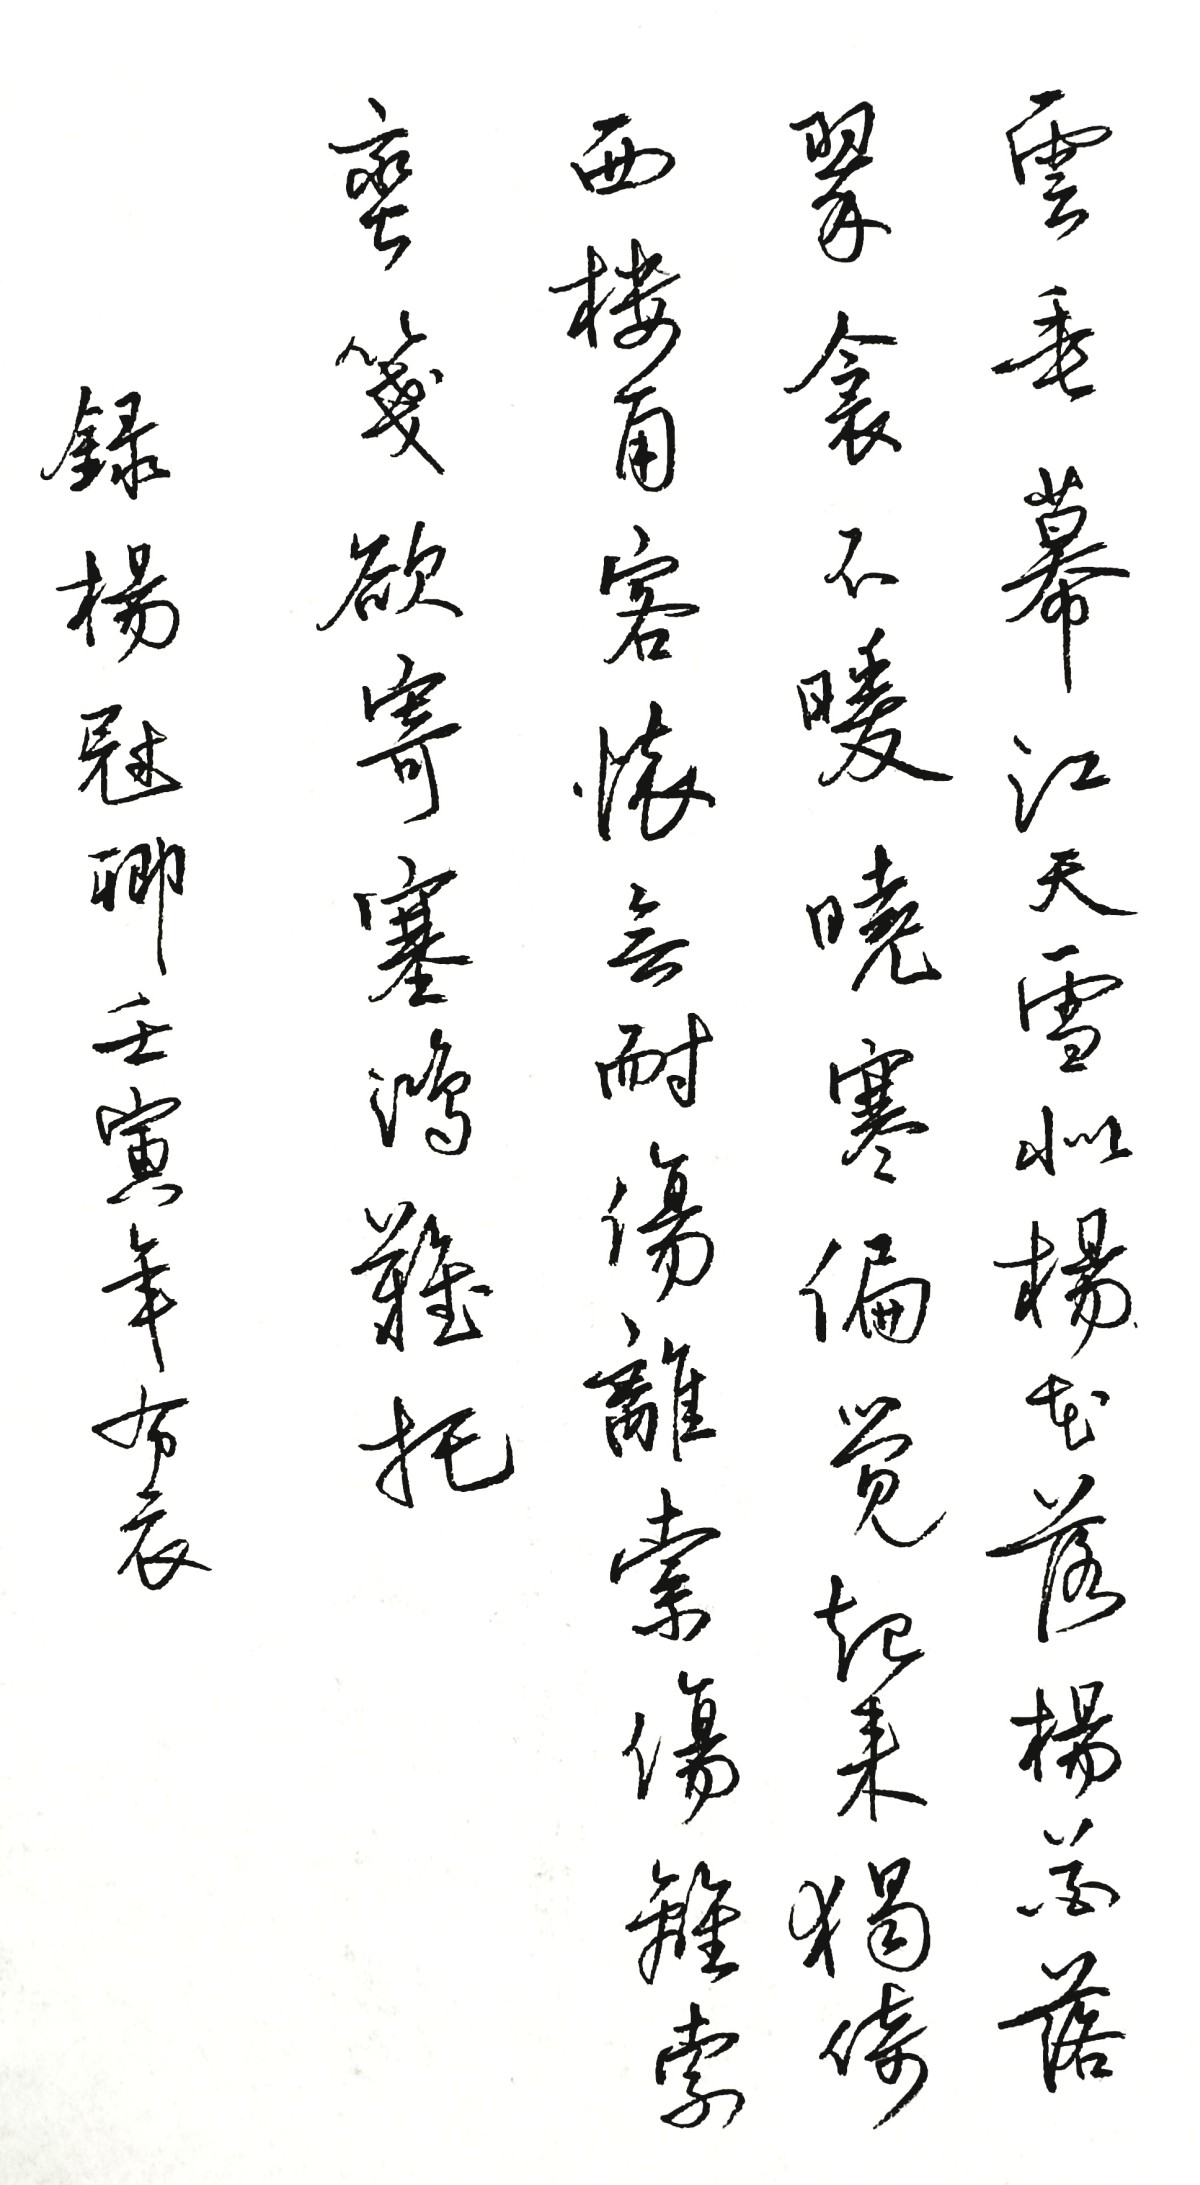 雲垂幕江天雪似楊花落楊花落
翠衾不暖曉寒偏觉起来獨倚
西楼角客懷无耐傷離索傷離索
蛮箋欲寄塞鴻難托
録楊冠卿壬寅年布衣